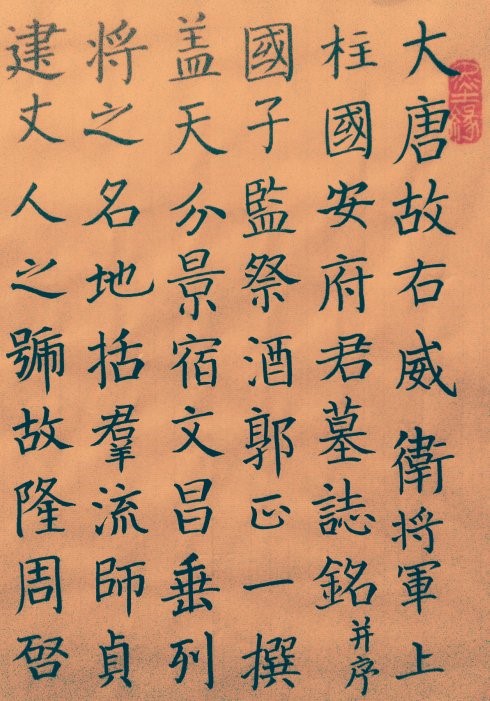 大唐故右威衛将軍上
柱國安府君墓誌銘并序
國子監祭酒郭正一撰
盖天分景宿文昌垂列
将之名地括羣流師貞
建丈人之號故隆周啓